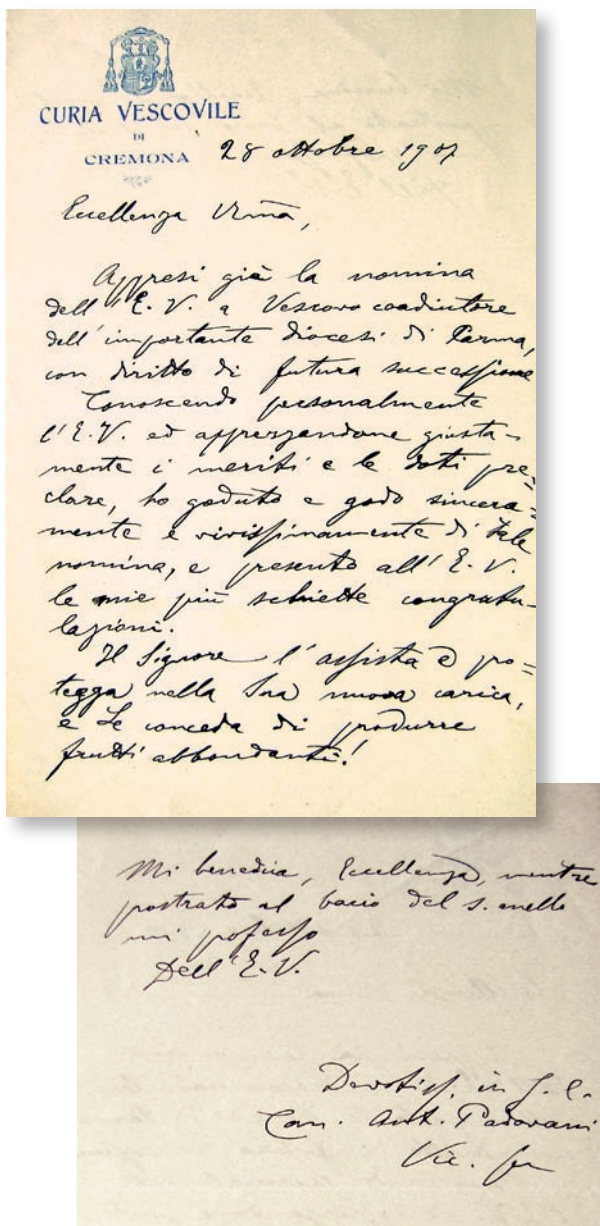 CURIA VESCOVILE
DI
CREMONA
28 ottobre 1907
Eccellenza Rma,
Appresi già la nomina
dell'E. V. a Vescovo coadiutore
dell'importante diocesi di Parma,
con diritto di futura successione
Conoscendo personalmente
l'E. V. ed apprezzandone giusta-
mente i meriti e le doti pre=
clare, ho goduto e godo sincera=
mente e vivissimamente di tale
nomina, e presento all'E. V.
le mie più schiette congratu-
lazioni.
Il Signore l'assista e pro=
tegga nella Sua nuova carica,
e Le conceda di produrre
frutti abbondanti!
Mi benedica, Eccellenza, mentre
prostrato al bacio del s. anello
mi professo
Dell'E. V.
Devotiss. in G. C.
Can. Ant. Padovani
Vic. gen